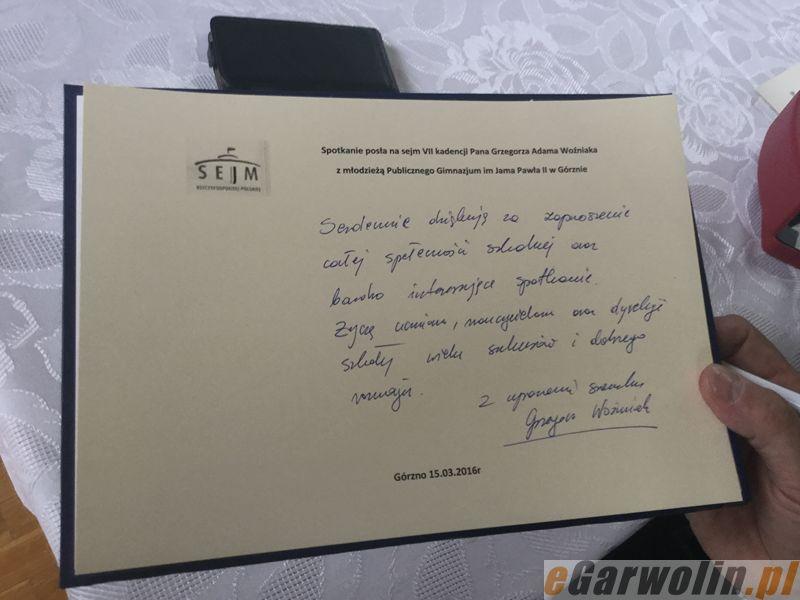 SEJM
RZECZYPOSPOLITEJ POLSKIEJ
Spotkanie posła na sejm VII kadencji Pana Grzegorza Adama Woźniaka
z młodzieżą Publicznego Gimnazjum im Jama Pawła II w Górznie
Serdecznie dziękuję za zaproszenie
całej społeczności szkolnej oraz
bardzo interesujące spotkanie.
Życzę uczniom, nauczycielom oraz dyrekcji
szkoły wielu sukcesów i dobrego
rozwoju.
Z wyrazami szacunku
Grzegorz Woźniak
Górzno 15.03.2016r
eGarwolin.pl